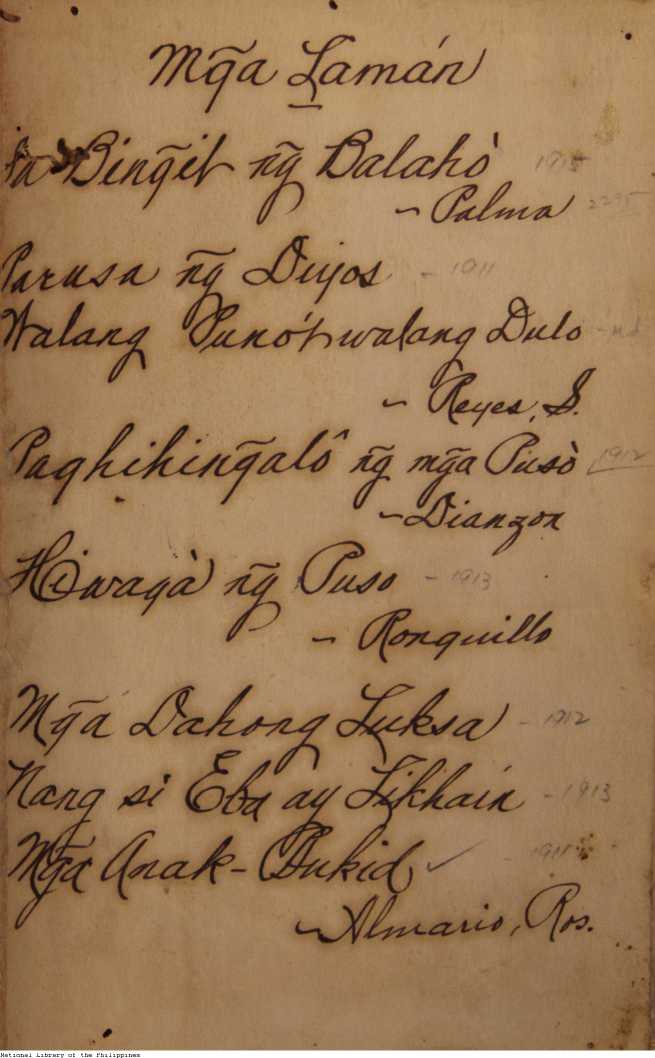 Mg̃a Lamán
Sa Bing̃it ng̃ Balahò 1915
- Palma
Parusa ng̃ Diyos - 1911
Walang Punó't walang Dulo
- Reyes, S.
Paghihing̃alô ng̃ mg̃a Pusò 1912
- Dianzon
Hiwagà ng̃ Puso - 1913
- Ronquillo
Mg̃a Dahong Luksa - 1912
Nang si Eba ay Likhain - 1913
Mg̃a Anak-Bukid - 1911
- Almario, Ros.
National Library of the Philippines